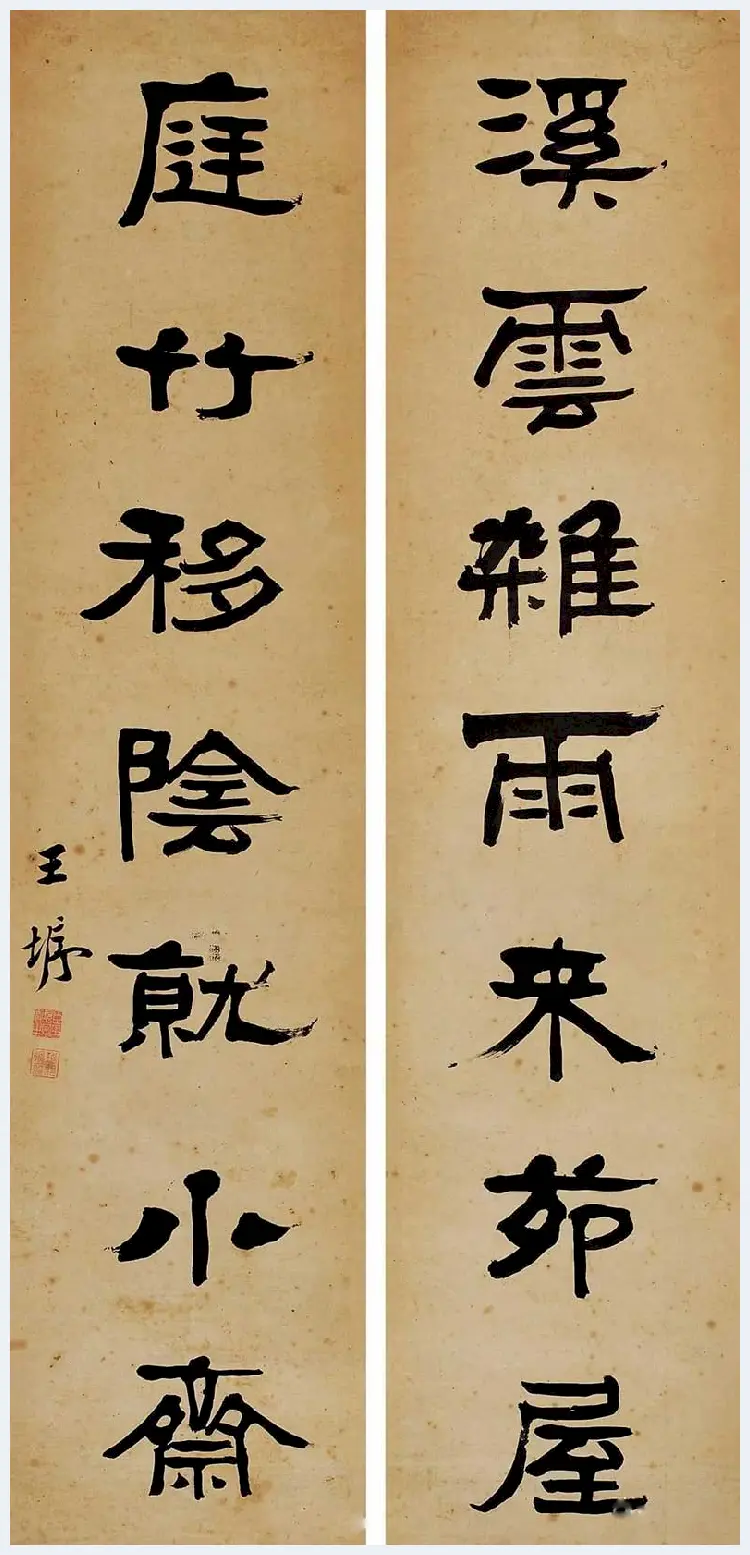 溪雲雜雨来茆屋
庭竹移陰就小齋
王